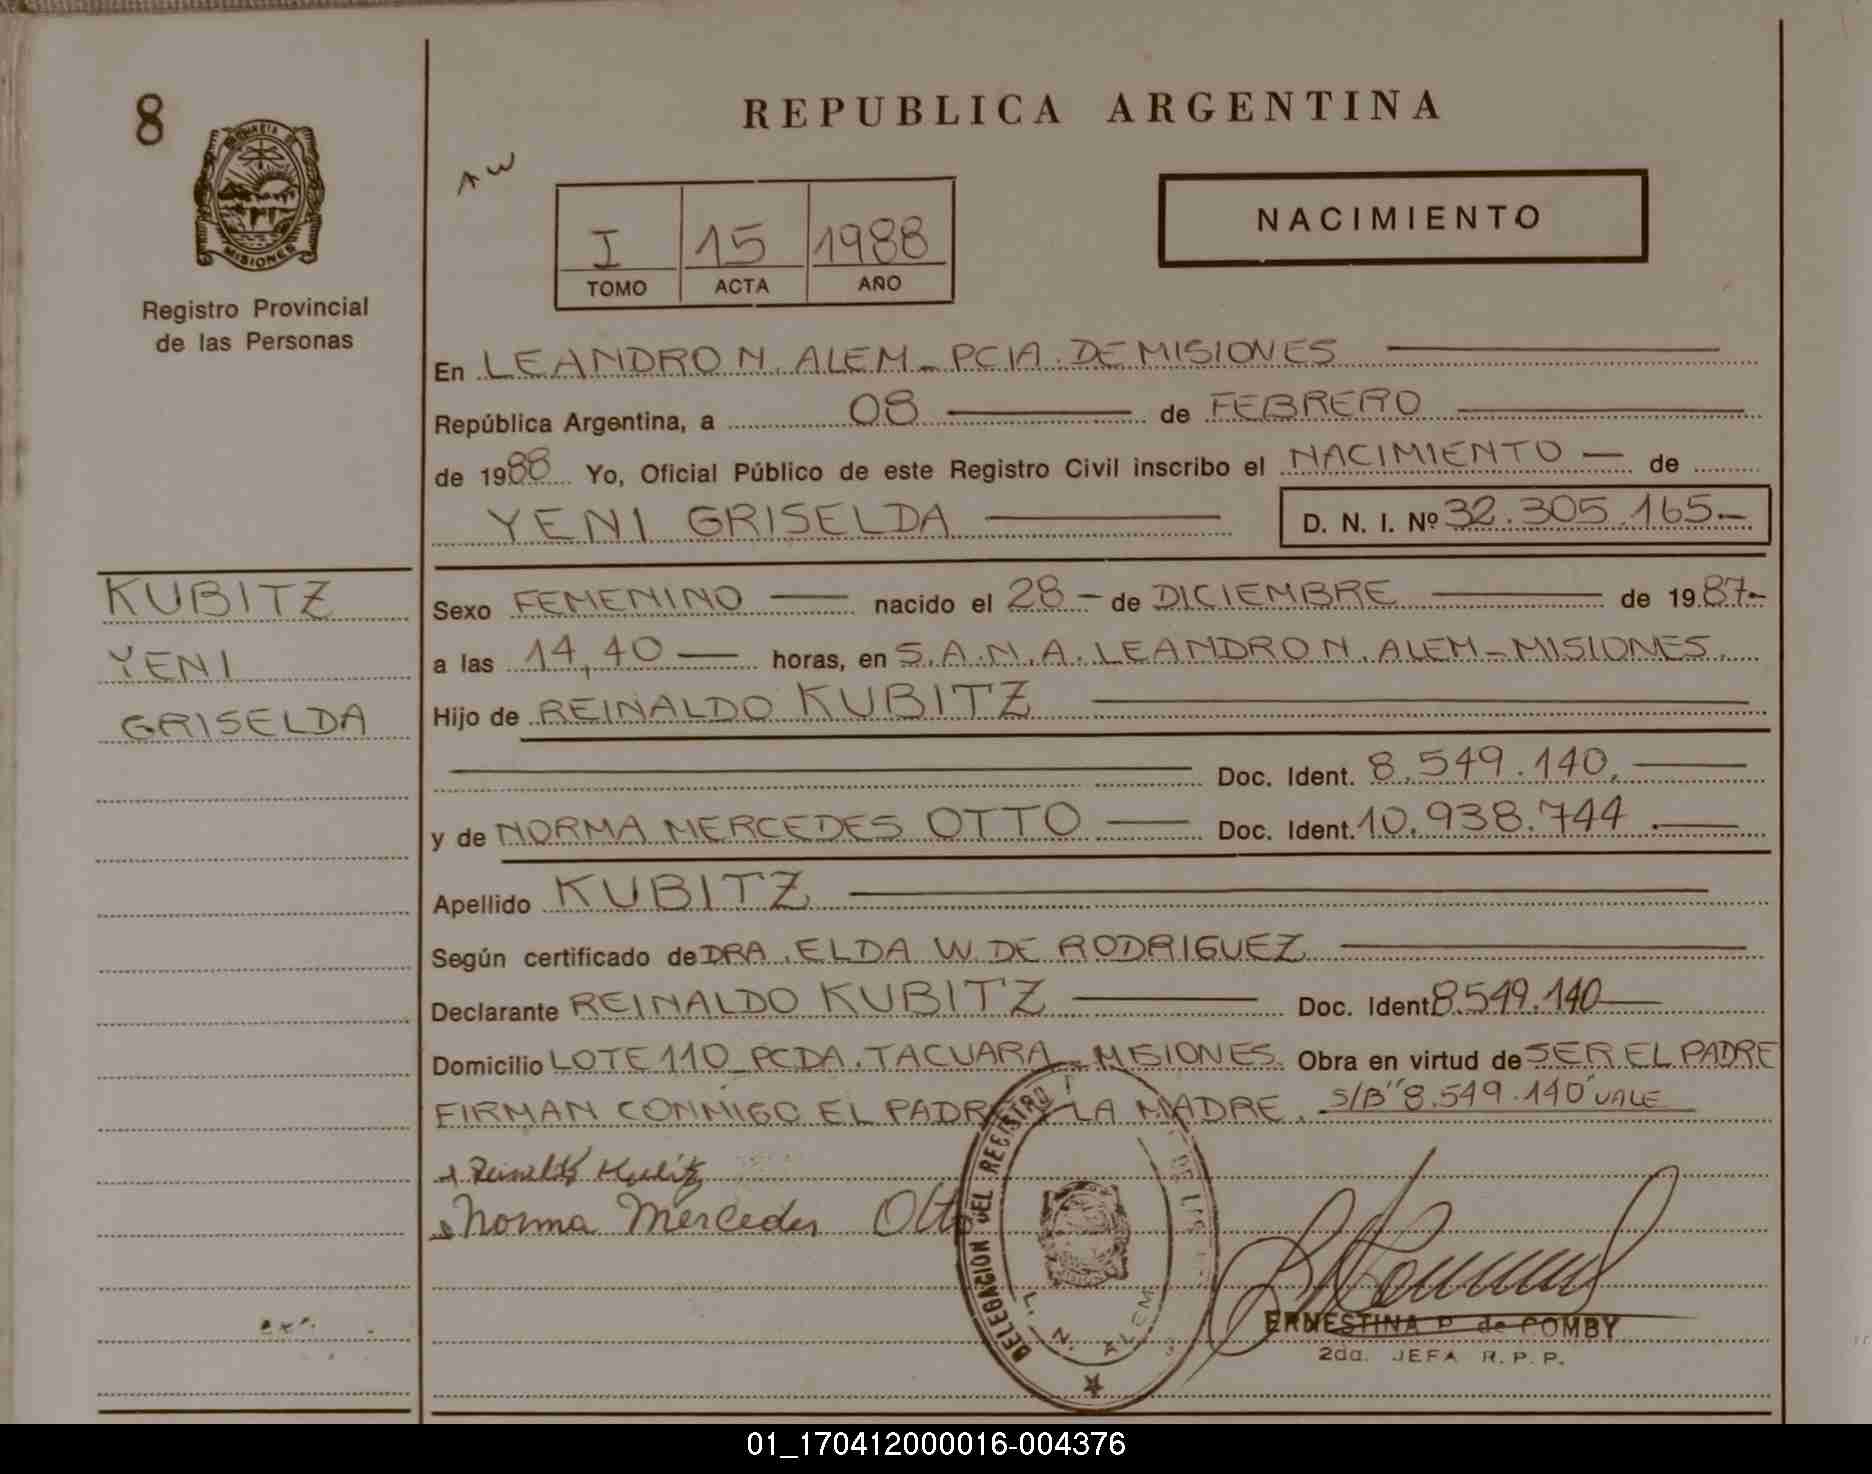 8
MISIONES
Registro Provincial
de las Personas
KUBITZ
YENI
GRISELDA
REPUBLICA ARGENTINA
I 15 1988
TOMO ACTA AÑO
NACIMIENTO
En LEANDRO N. ALEM - PCIA. DE MISIONES
República Argentina, a 08 de FEBRERO
de 1988 Yo, Oficial Público de este Registro Civil inscribo el NACIMIENTO — de
YENI GRISELDA D. N. I. Nº 32.305.165-
Sexo FEMENINO — nacido el 28 - de DICIEMBRE — de 1987-
a las 14,40 — horas, en S.A.M.A. LEANDRO N. ALEM - MISIONES.
Hijo de REINALDO KUBITZ
Doc. Ident. 8.549.140.
y de NORMA MERCEDES OTTO — Doc. Ident. 10.938.744.
Apellido KUBITZ
Según certificado de DRA. ELDA W. DE RODRIGUEZ
Declarante REINALDO KUBITZ — Doc. Ident. 8.549.140
Domicilio LOTE 110 - PCDA. TACUARA - MISIONES. Obra en virtud de SER EL PADRE
FIRMAN CONMIGO EL PADRE Y LA MADRE. S/B "8.549.140" VALE
Reinaldo Kubitz
Norma Mercedes Otto
DELEGACION DEL REGISTRO
L. N. ALEM
ERNESTINA P. de COMBY
2da. JEFA R.P.P.
01_170412000016-004376